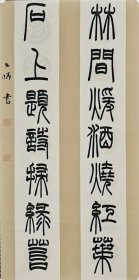 林間煖酒燒紅葉
石上題詩掃綠苔